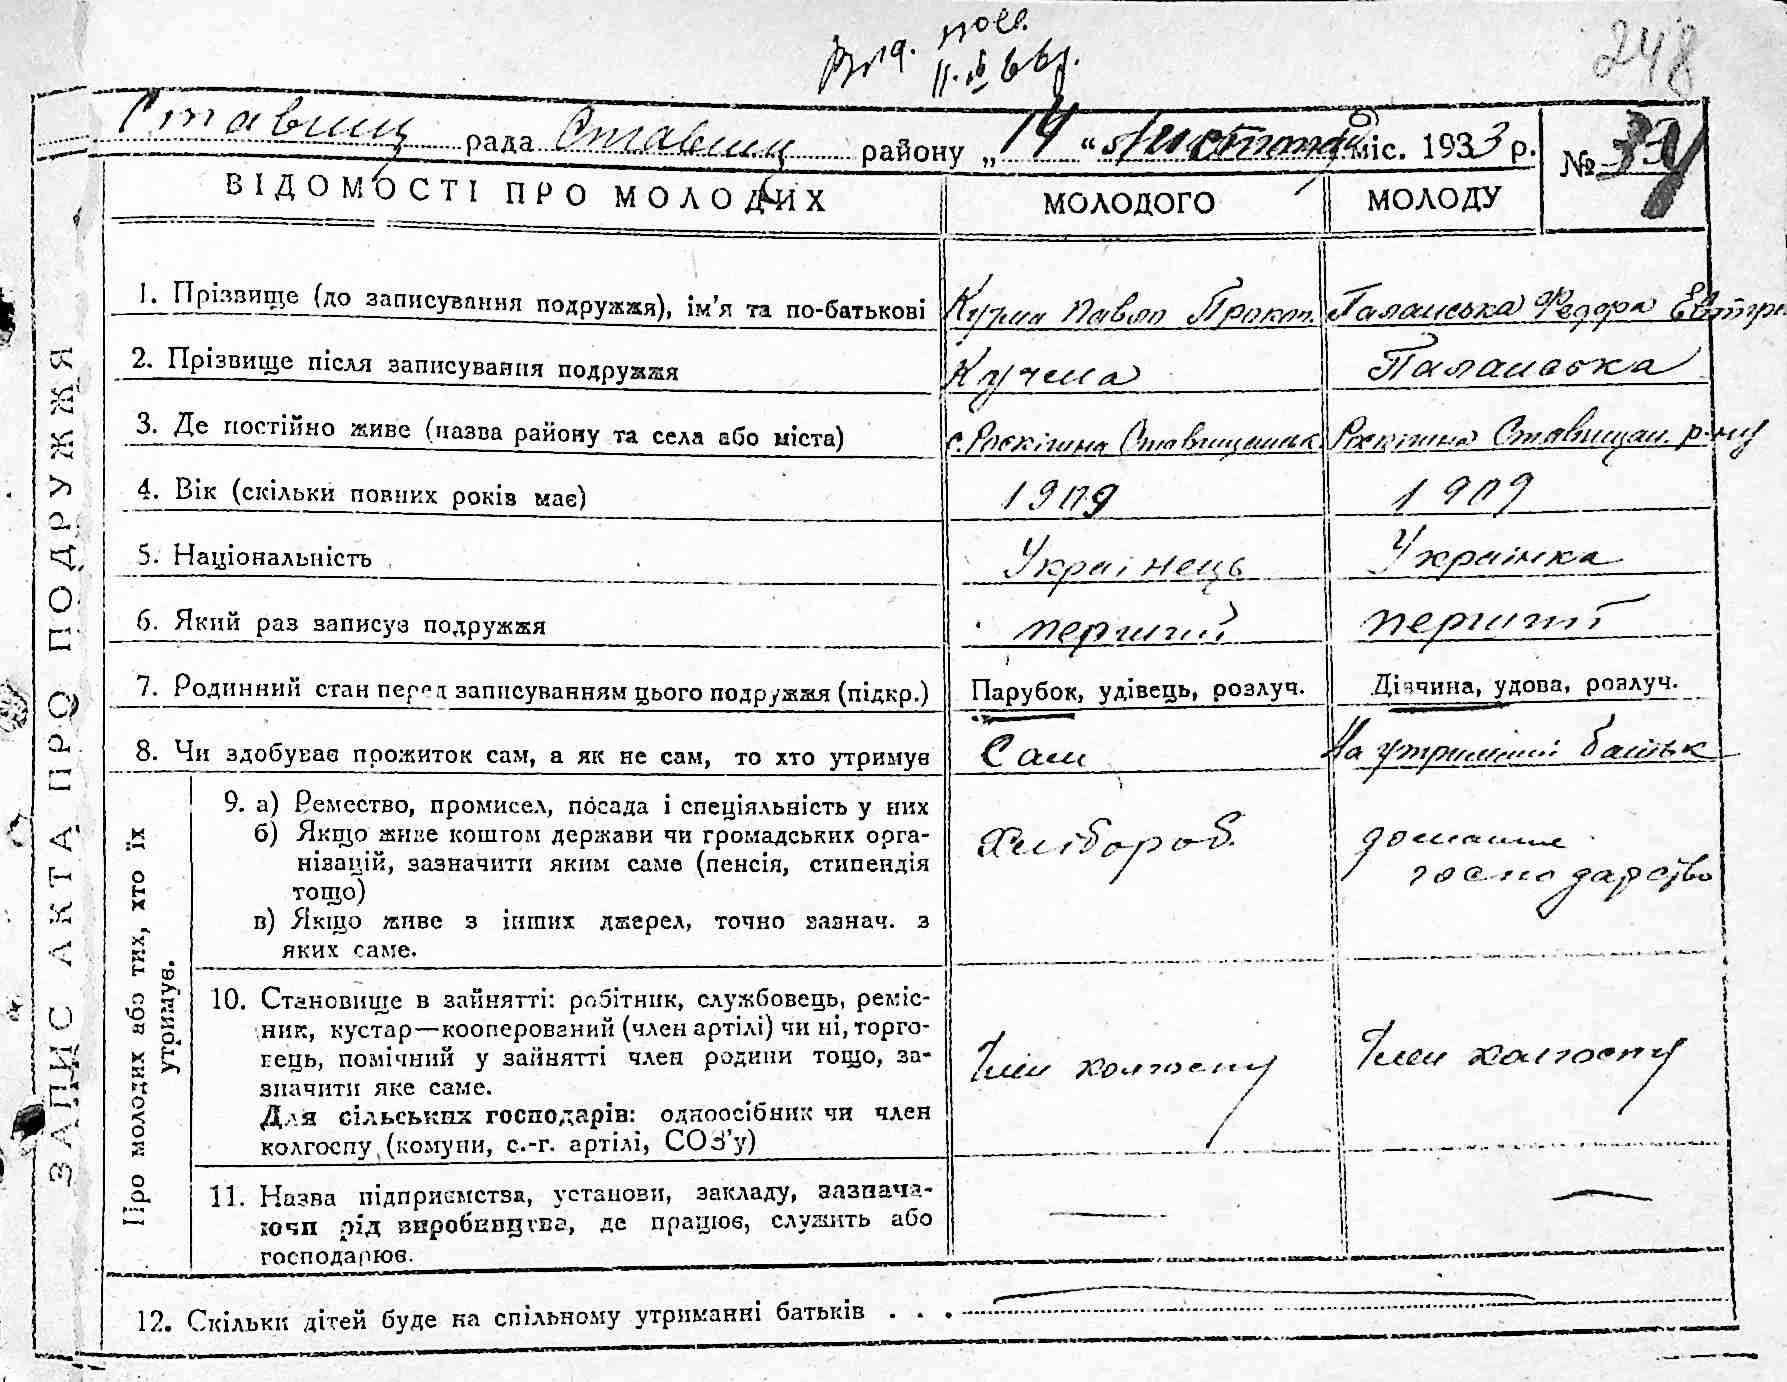 248
Ставищ рада Ставищ району „14“ листопад міс. 1933 р.
№ 39
ВІДОМОСТІ ПРО МОЛОДИХ
МОЛОДОГО
МОЛОДУ
ЗАПИС АКТА ПРО ПОДРУЖЖЯ
1. Прізвище (до записування подружжя), ім’я та по-батькові
Кучма Павло Прокоп.
Паланська Федора Евтро
2. Прізвище після записування подружжя
Кучма
Паланська
3. Де постійно живе (назва району та села або міста)
с. Роскішна Ставищанськ
Роскішна Ставищан. р-ну
4. Вік (скільки повних років має)
1909
1909
5. Національність
Украінець
Украінка
6. Який раз записує подружжя
перший
перший
7. Родинний стан перед записуванням цього подружжя (підкр.)
Парубок, удівець, розлуч.
Дівчина, удова, розлуч.
8. Чи здобуває прожиток сам, а як не сам, то хто утримує
Сам
На утриманні батьк
Про молодих або тих, хто їх утримує.
9. а) Ремество, промисел, посада і спеціяльність у них
б) Якщо живе коштом держави чи громадських орга-
нізацій, зазначити яким саме (пенсія, стипендія
тощо)
в) Якщо живе з інших джерел, точно зазнач. з
яких саме.
Хлібороб.
домашнє
господарство
10. Становище в зайнятті: робітник, службовець, реміс-
ник, кустар—кооперований (член артілі) чи ні, торго-
вець, помічний у зайнятті член родини тощо, за-
значити яке саме.
Для сільських господарів: одноосібник чи член
колгоспу (комуни, с.-г. артілі, СОЗ’у)
Член колгоспу
Член колгоспу
11. Назва підприємства, установи, закладу, зазнача-
ючи рід виробництва, де працює, служить або
господарює.
—
—
12. Скільки дітей буде на спільному утриманні батьків . . .